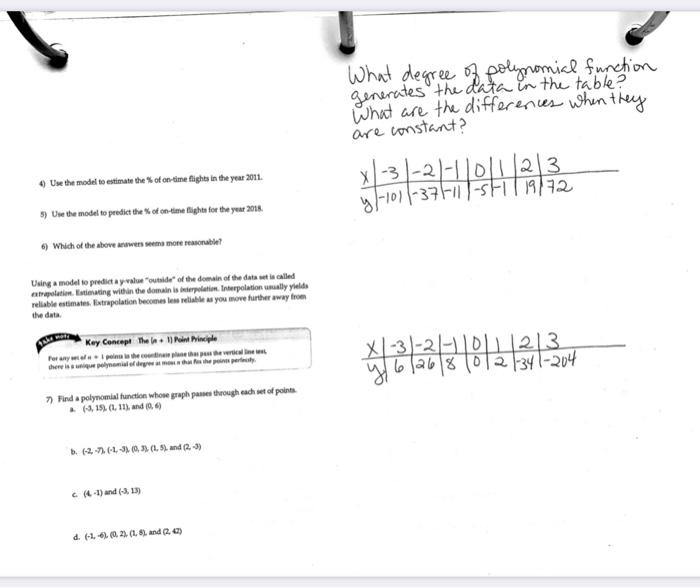 4) Use the model to estimate the % of on-time flights in the year 2011.
5) Use the model to predict the % of on-time flights for the year 2018.
6) Which of the above answers seems more reasonable?
Using a model to predict a y-value "outside" of the domain of the data set is called
extrapolation. Estimating within the domain is interpolation. Interpolation usually yields
reliable estimates. Extrapolation becomes less reliable as you move further away from
the data.
take note
Key Concept The (n + 1) Point Principle
For any set of n + 1 points in the coordinate plane that pass the vertical line test,
there is a unique polynomial of degree at most n that fits the points perfectly.
7) Find a polynomial function whose graph passes through each set of points.
a. (-3, 15), (1, 11), and (0, 6)
b. (-2, -7), (-1, -3), (0, 3), (1, 5), and (2, -3)
c. (4, -1) and (-3, 13)
d. (-1, -6), (0, 2), (1, 8), and (2, 42)
What degree of polynomial function
generates the data in the table?
What are the differences when they
are constant?
x | -3 | -2 | -1 | 0 | 1 | 2 | 3
y | -101 | -37 | -11 | -5 | -1 | 19 | 72
x | -3 | -2 | -1 | 0 | 1 | 2 | 3
y | 6 | 26 | 8 | 0 | 2 | -34 | -204